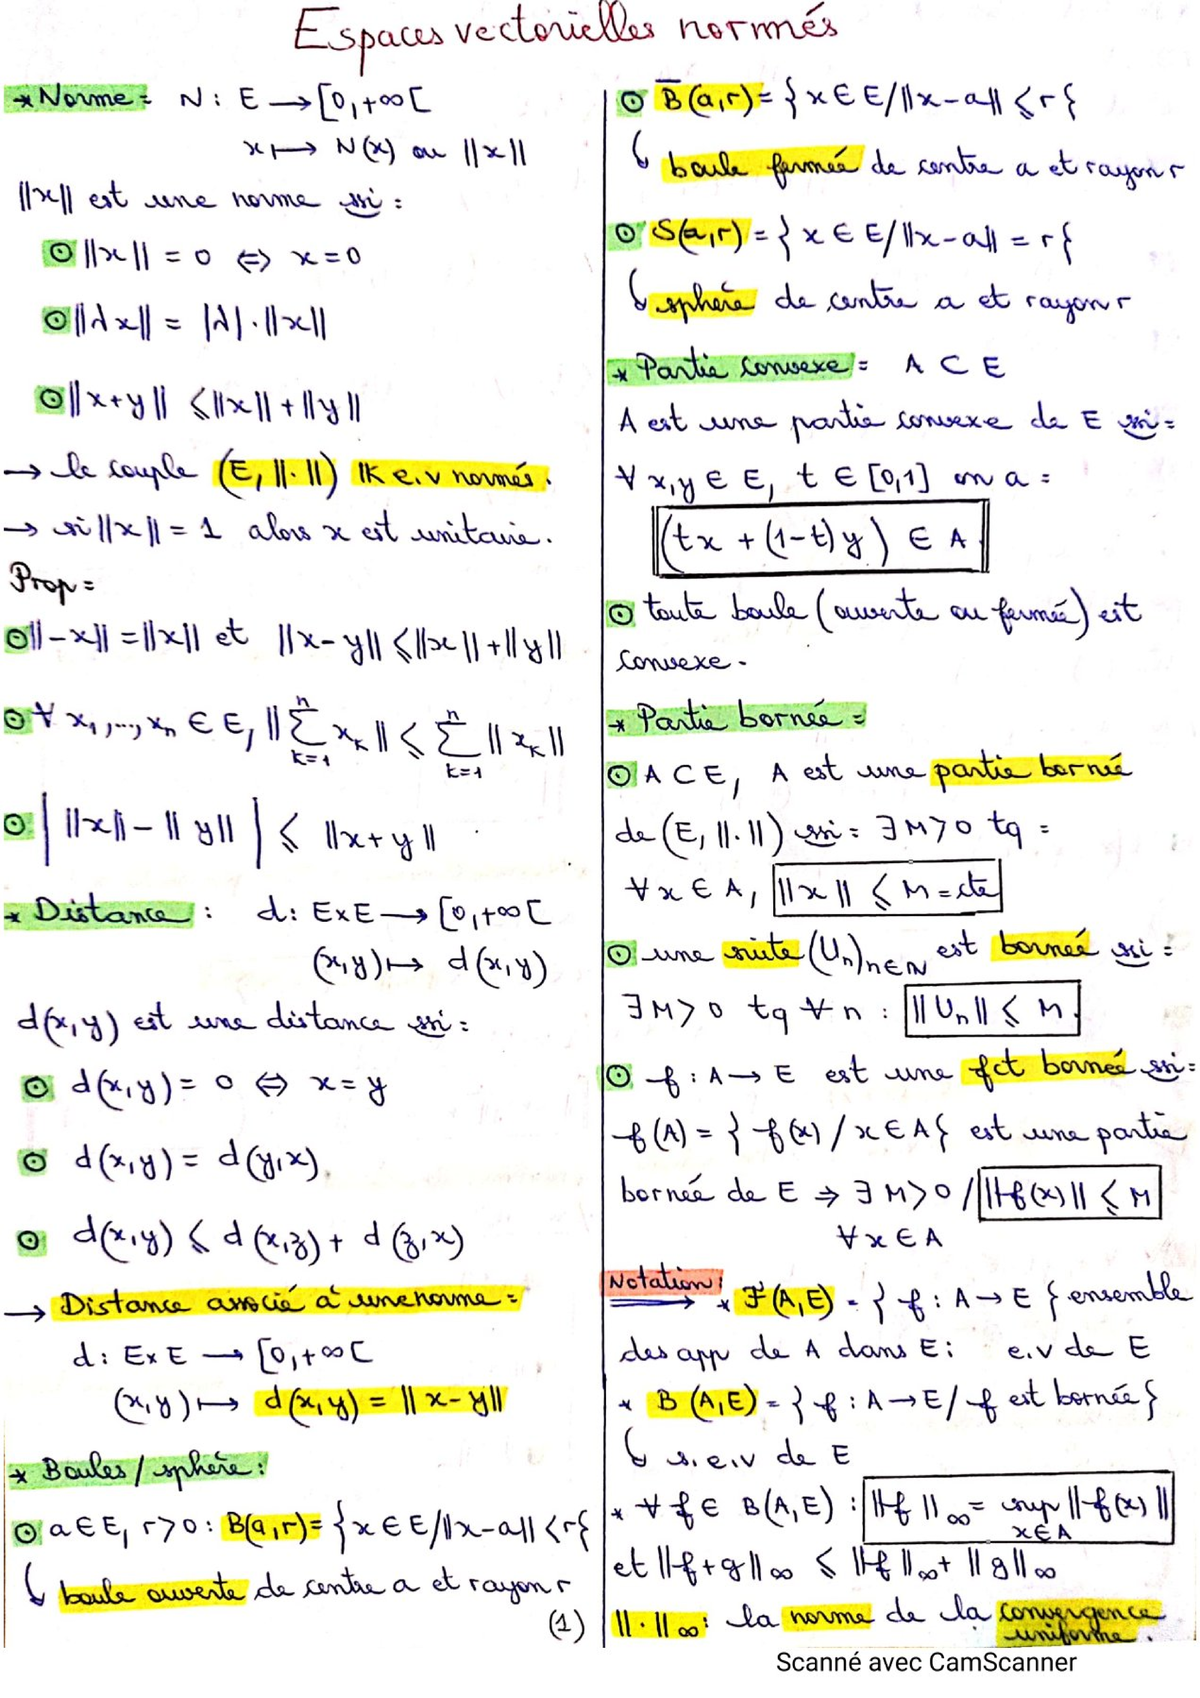 Espaces vectorielles normés
* Norme = N : E → [0,+∞[
x ↦ N(x) ou ||x||
||x|| est une norme ssi :
⊙ ||x|| = 0 ⇔ x = 0
⊙ ||λx|| = |λ|.||x||
⊙ ||x+y|| ⩽ ||x|| + ||y||
→ le couple (E, ||.||) IK e.v normés.
→ si ||x|| = 1 alors x est unitaire.
Prop =
⊙ ||-x|| = ||x|| et ||x-y|| ⩽ ||x|| + ||y||
⊙ ∀ x₁,...,xₙ ∈ E, ||∑ₖ₌₁ⁿ xₖ|| ⩽ ∑ₖ₌₁ⁿ ||xₖ||
⊙ | ||x|| - ||y|| | ⩽ ||x+y||
* Distance : d : E×E → [0,+∞[
(x,y) ↦ d(x,y)
d(x,y) est une distance ssi :
⊙ d(x,y) = 0 ⇔ x = y
⊙ d(x,y) = d(y,x).
⊙ d(x,y) ⩽ d(x,z) + d(z,x)
→ Distance associé à une norme =
d : E×E → [0,+∞[
(x,y) ↦ d(x,y) = ||x-y||
* Boules / sphère :
⊙ a ∈ E, r > 0 : B(a,r) = { x ∈ E / ||x-a|| < r {
↳ boule ouverte de centre a et rayon r
(1)
⊙ B̅(a,r) = { x ∈ E / ||x-a|| ⩽ r {
↳ boule fermée de centre a et rayon r
⊙ S(a,r) = { x ∈ E / ||x-a|| = r {
↳ sphère de centre a et rayon r
* Partie convexe = A ⊂ E
A est une partie convexe de E ssi =
∀ x,y ∈ E, t ∈ [0,1] on a =
(tx + (1-t)y) ∈ A
⊙ toute boule (ouverte ou fermée) est
convexe.
* Partie bornée =
⊙ A ⊂ E, A est une partie bornée
de (E, ||.||) ssi = ∃ M > 0 tq =
∀ x ∈ A, ||x|| ⩽ M = cte
⊙ une suite (Uₙ)ₙ∈ℕ est bornée ssi =
∃ M > 0 tq ∀ n : ||Uₙ|| ⩽ M
⊙ f : A → E est une fct bornée ssi =
f(A) = { f(x) / x ∈ A { est une partie
bornée de E ⇒ ∃ M > 0 / ||f(x)|| ⩽ M
∀ x ∈ A
Notation :
* ℱ(A,E) = { f : A → E { ensemble
des app de A dans E : e.v de E
* B(A,E) = { f : A → E / f est bornée }
↳ s.e.v de E
* ∀ f ∈ B(A,E) : ||f||∞ = sup ||f(x)||
x∈A
et ||f+g||∞ ⩽ ||f||∞ + ||g||∞
||.||∞ : la norme de la convergence
uniforme.
Scanné avec CamScanner